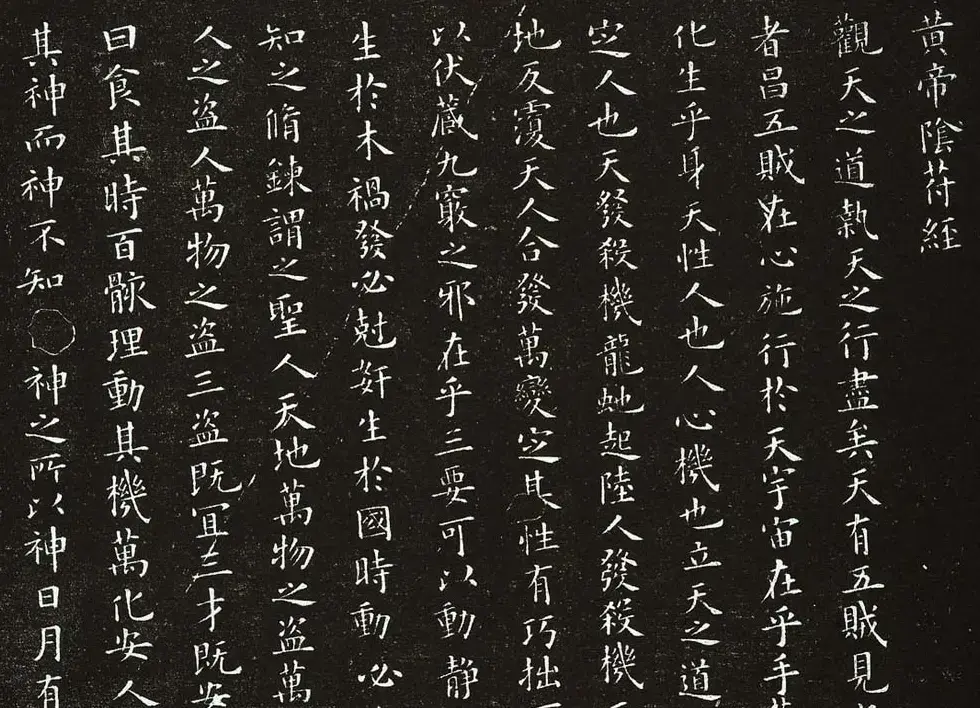 黃帝陰符經
觀天之道執天之行盡矣天有五賊見
者昌五賊在心施行於天宇宙在乎手
化生乎身天性人也人心機也立天之道
定人也天發殺機龍虵起陸人發殺機
地反覆天人合發萬變定其性有巧拙
以伏藏九竅之邪在乎三要可以動静
生於木禍發必尅奸生於國時動必
知之脩鍊謂之聖人天地萬物之盜萬
人之盜人萬物之盜三盜既冝三才既安
曰食其時百骸理動其機萬化安人
其神而神不知神之所以神日月有